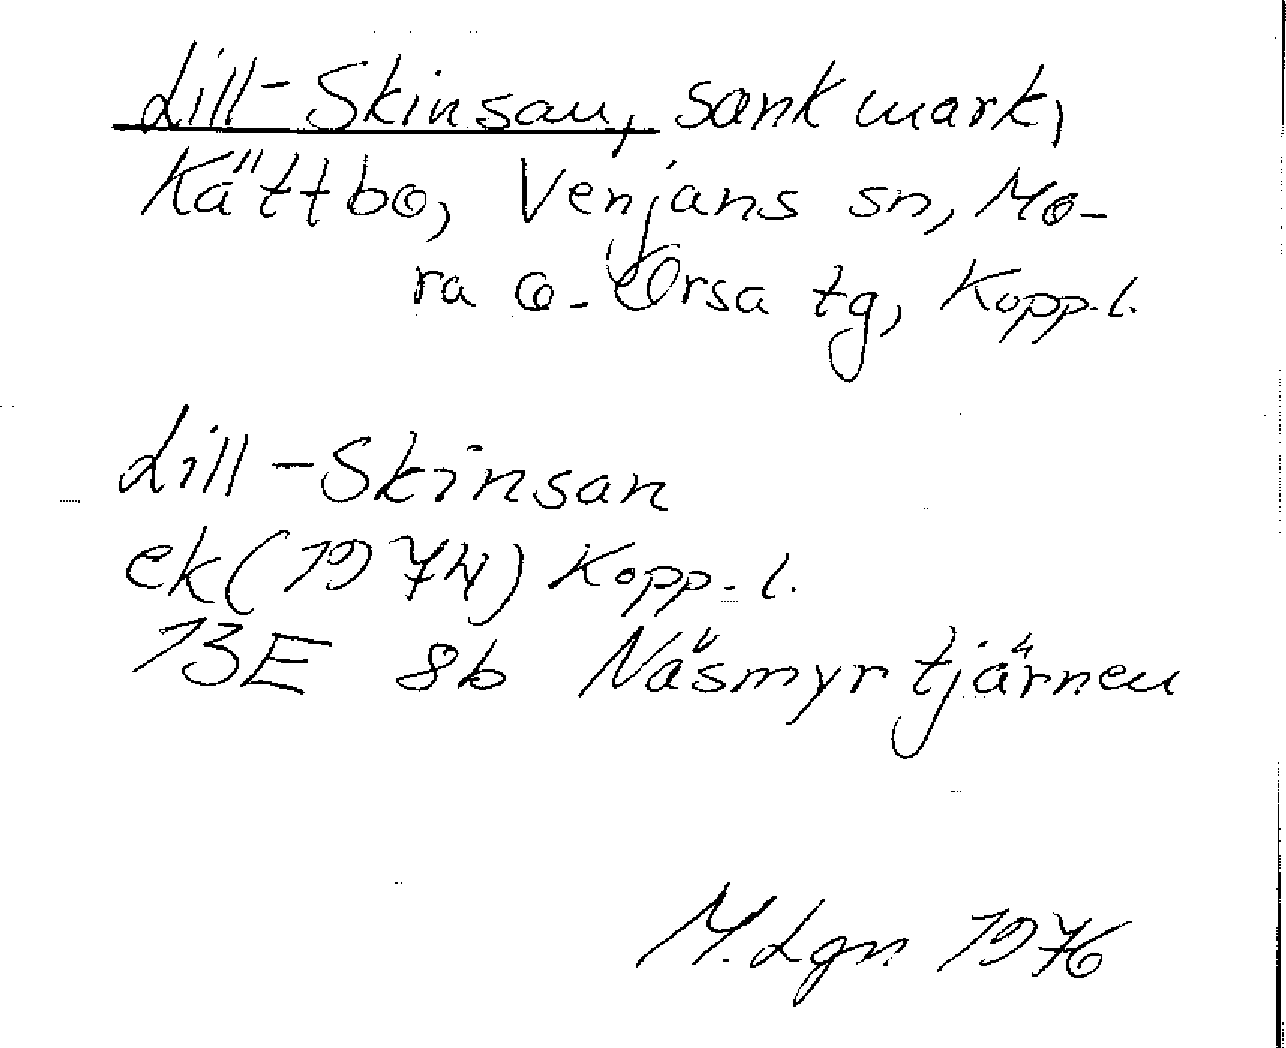 Lill-Skinsan, sank mark,
Kättbo, Venjans sn, Mo-
ra o. Orsa tg, Kopp.l.
Lill-Skinsan
ek (1974) Kopp. l.
13E 8b Näsmyrtjärnen
M. Lgn 1976